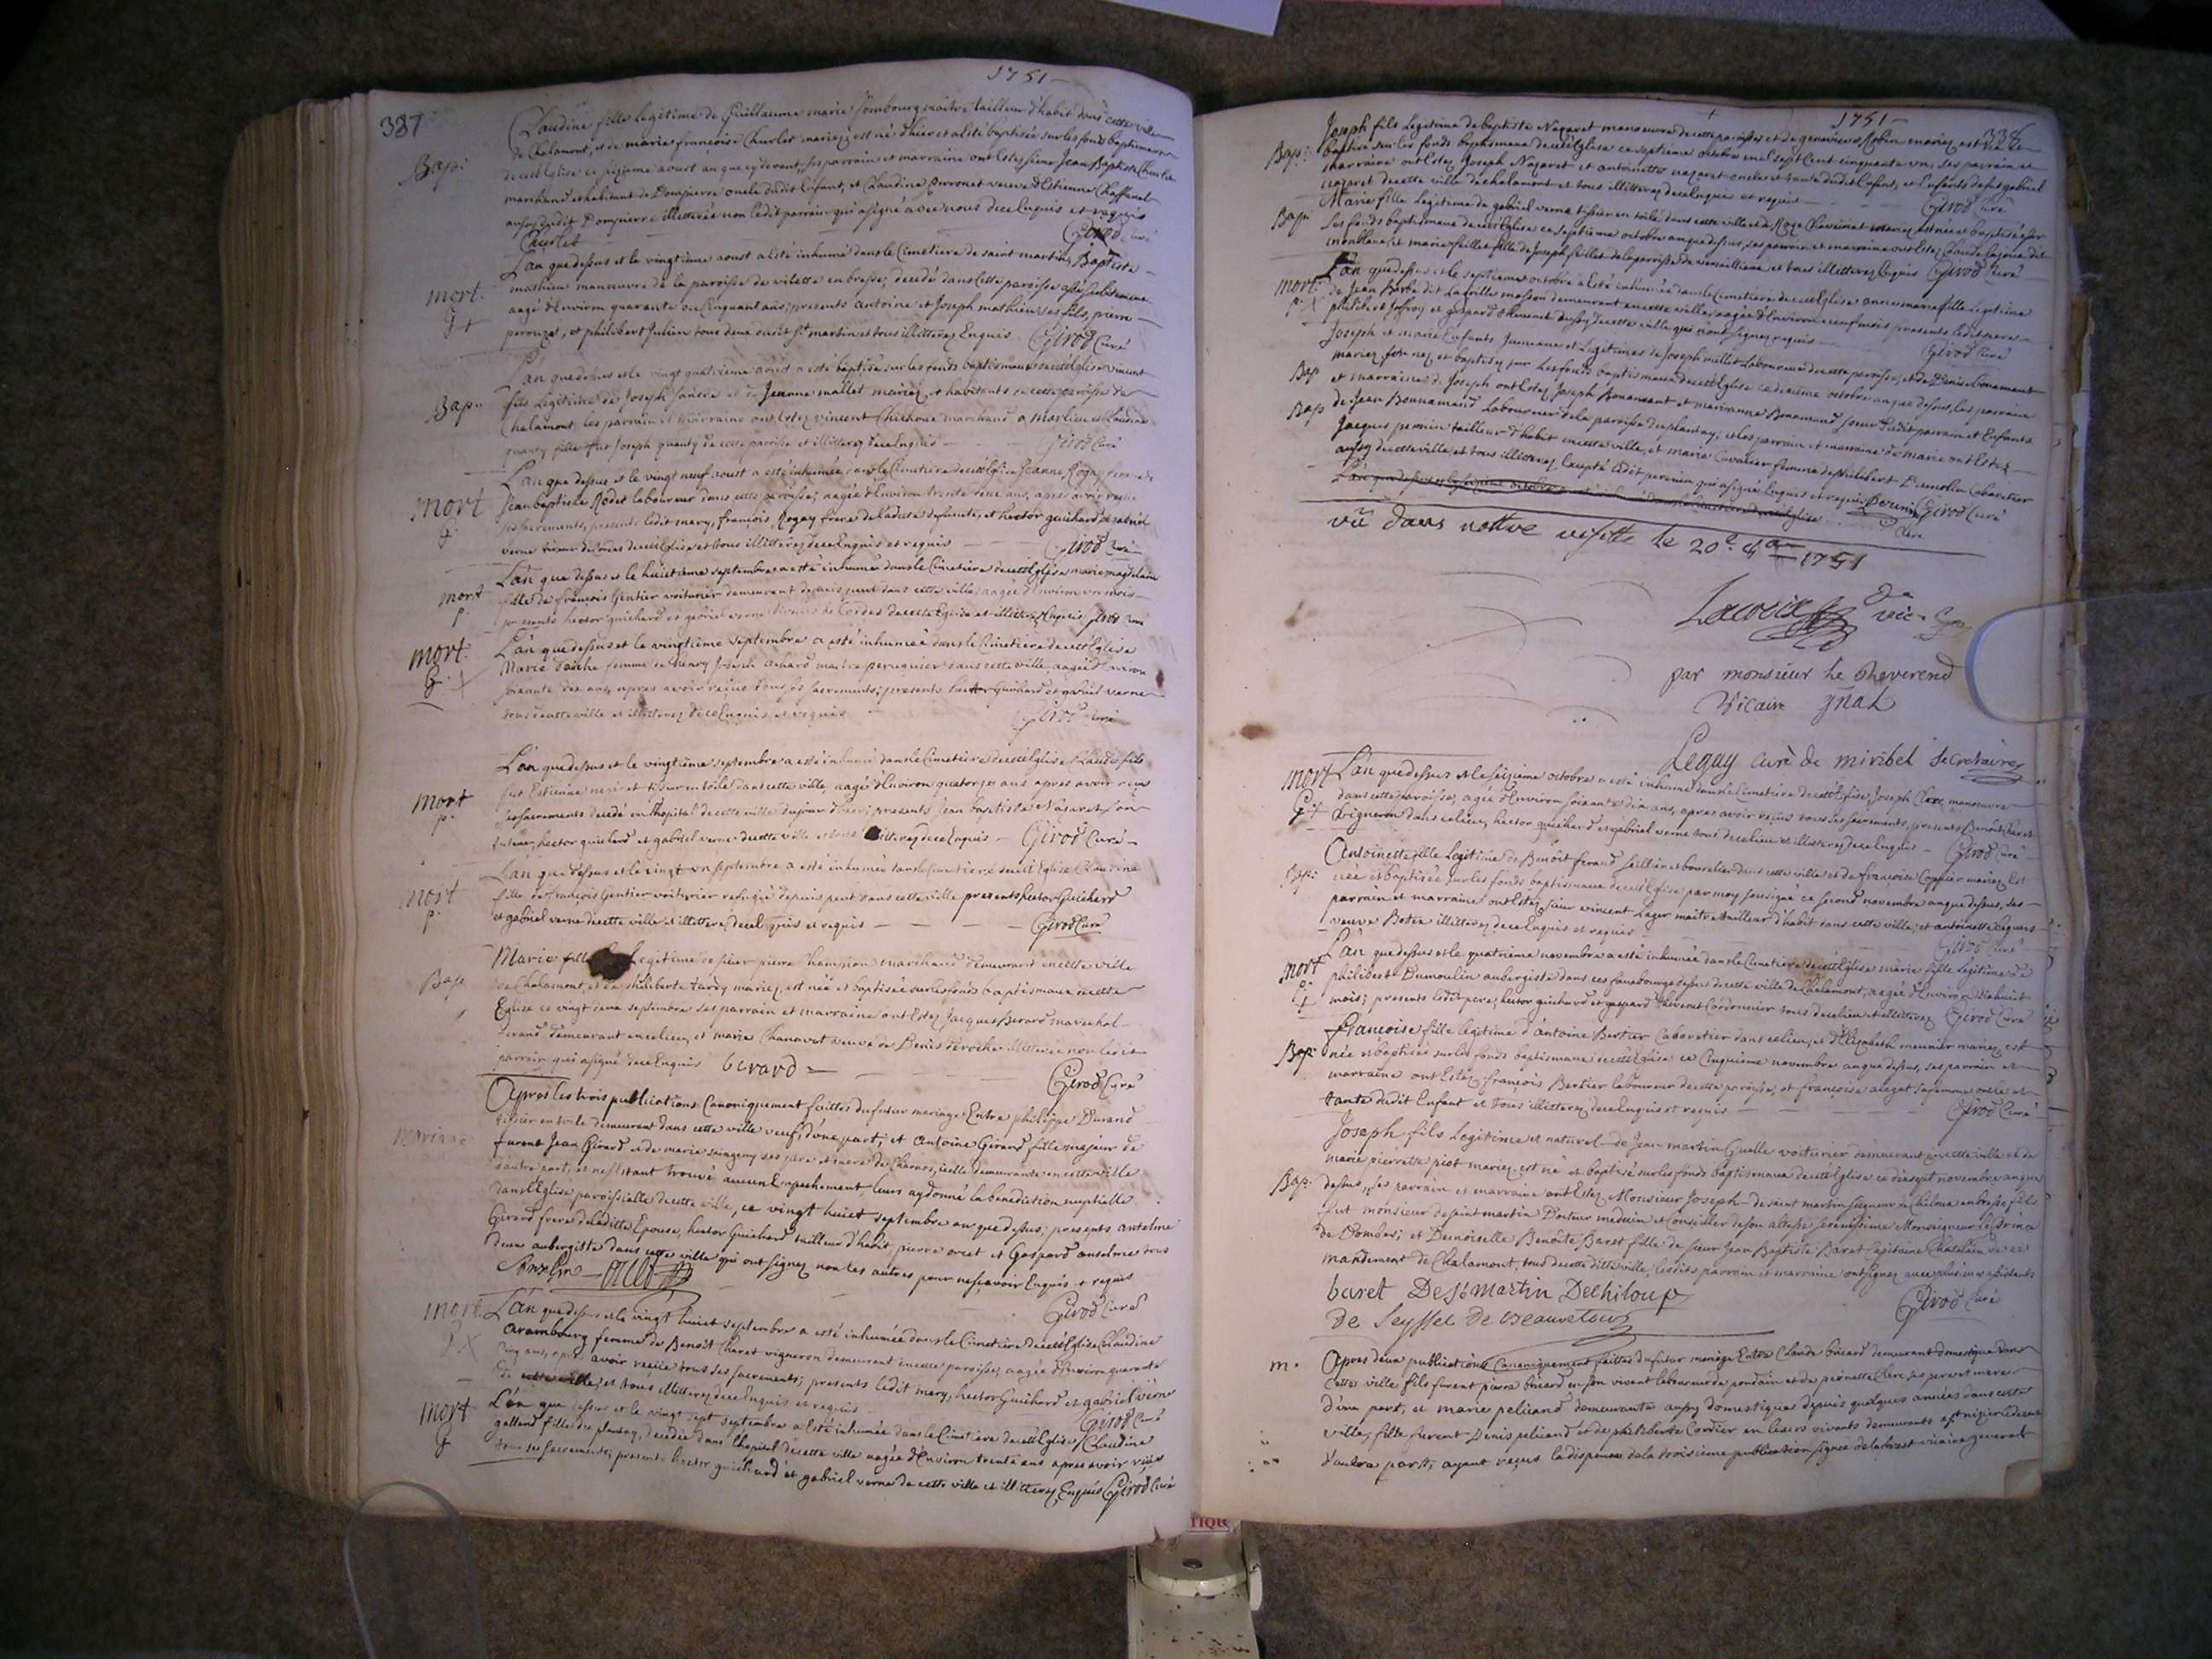 1751
387
Claudine fille legitime de Guillaume marie maitre tailleur d'habit dans cette ville
de Chalamont, et de marie françoise Churlet mariez, est né d'hier et a été baptisée sur les fonds baptismaux
Bap:
de cette Eglise ce aoust an que cy devant, ses parrain et marraine ont Estez sieur Jean Baptiste Churlet
marchand et habitant de Dompierre oncle dudit Enfant, et Claudine Perronet veuve d'Etienne
aussy dudit Dompierre illitterée non ledit parrain qui a signé avec nous de ce Enquis et requis
Churlet Girod Curé
L'an que dessus et le vingtieme aoust a esté inhumé dans le Cimetiere de saint martin Baptiste
mort.
mathieu manoeuvre de la paroisse de vilette en bresse; decedé dans cette paroisse assé subitement
aagé d'Environ quarante ou Cinquant ans; presents antoine et Joseph mathieu ses fils, pierre
perrouzat, et philibert Julien tous deux dudit St martin et tous illitterez Enquis Girod Curé
L'an que dessus et le vingt quatrieme aoust a esté baptisé sur les fonds baptismaux de cette Eglise vincent
Bap:
fils Legitime de Joseph et de Jeanne mallet mariez, et habitants de cette paroisse de
Chalamont, les parrain et marraine ont Estez vincent marchand a Marlieu et Claudine
fille fut Joseph de cette paroisse et illitterez de ce Enquis Girod Curé
L'an que dessus et le vingt neuf aoust a esté inhumée dans le Cimetiere de cette Eglise Jeanne Rogay femme de
mort
Jean baptiste Rodet laboureur dans cette paroisse; aagée d'Environ trente deux ans, apres avoir reçu
ses sacrements, presents ledit mary, françois Rogay frere de la dite defunte, et hector guichard et gabriel
verne de cette Eglise et tous illitterez de ce Enquis et requis Girod Curé
L'an que dessus et le huitieme septembre a esté inhumée dans le Cimetiere de cette Eglise marie magdelaine
mort
p.
fille de françois Gentier voiturier demeurant depuis peut dans cette ville, aagée d'Environ un mois
presents hector guichard et gabriel verne de cette Eglise et illitterez Enquis Girod Curé
mort.
L'an que dessus et le vingtieme septembre a esté inhumée dans le Cimetiere de cette Eglise
Marie femme de henry Joseph achard maitre peruquier dans cette ville, aagée d'Environ
soixante dix ans, apres avoir reçue tous ses sacrements; presents hector Guichard et gabriel verne
tous de cette ville et illitterez de ce Enquis et requis Girod Curé
L'an que dessus et le vingtieme septembre a esté inhumé dans le Cimetiere de cette Eglise Claude fils
mort
p.
fut Estienne et tissier en toile dans cette ville, aagé d'Environ quatorze ans apres avoir reçus
ses sacrements decedé en l'hopital de cette ville du jour d'hier; presents Jean baptiste Nazaret son
hector guichard et gabriel verne de cette ville et tous illitterez de ce Enquis Girod Curé
L'an que dessus et le vingt un septembre a esté inhumée dans le Cimetiere de cette Eglise Claudine
mort
p.
fille de françois Gentier voiturier refugié depuis peut dans cette ville presents hector Guichard
et gabriel verne de cette ville et illitterez de ce Enquis et requis Girod Curé
Marie fille Legitime de sieur pierre Champion marchand demeurant en cette ville
Bap
de Chalamont, et de philiberte tardy mariez, est née et baptisée sur les fonds baptismaux de cette
Eglise ce vingt deux septembre ses parrain et marraine ont Estez Jacques Berard mareschal
ferand demeurant en ce lieu, et marie Chanavat veuve de Denis deroche illitterée non ledit
parrain qui a signé de ce Enquis berard Girod Curé
Apres les trois publications Canoniquement faittes du futur mariage Entre philippe Durand
mariage
tissier en toile demeurant dans cette ville veuf, d'une part; et Antoine Girard fille majeur de
furent Jean Girard et de marie ses pere et mere de Charnoz, icelle demeurante en cette ville
d'autre part, et ne s'estant trouvé aucun Empechement, leurs ay donné la benediction nuptialle
dans l'Eglise paroissialle de cette ville, ce vingt huict septembre an que dessus; presents antelme
Girard frere de la ditte Epouse, hector Guichard tailleur d'habit, pierre orcet et Gaspard anselme tous
deux aubergiste dans cette ville qui ont signez non les autres pour ne sçavoir Enquis et requis
Anselm orcet Girod Curé
mort.
L'an que dessus et le vingt huict septembre a esté inhumée dans le Cimetiere de cette Eglise Claudine
Arambourg femme de Benoit Charet vigneron demeurant en cette paroisse, aagée d'Environ quarante
Cinq ans, apres avoir reçue tous ses sacrements; presents ledit mary, hector Guichard et gabriel verne
de cette ville, et tous illitterez de ce Enquis et requis Girod Curé
mort
L'an que dessus et le vingt sept septembre a Esté inhumée dans le Cimetiere de cette Eglise Claudine
galland fille du plantay, decedée dans l'hopital de cette ville aagée d'Environ trente ans apres avoir reçue
tous ses sacrements; presents hector guichard et gabriel verne de cette ville et illitterez, Enquis Girod Curé
1751
338
Joseph fils Legitime de baptiste Nazaret manoeuvre de cette paroisse, et de genevieve Robin mariez, est né et
Bap:
baptisé sur les fonds baptismaux de cette Eglise ce septieme octobre mil sept cent cinquante un, ses parrain et
marraine ont Estez Joseph Nazaret et antoinette nazaret oncle et tante dudit Enfant, et Enfants de fut gabriel
nazaret de cette ville de chalamont et tous illitterez de ce Enquis et requis Girod Curé
Marie fille Legitime de gabriel verne tissier en toile dans cette ville et de Roze mariez est née et baptisée sur
Bap:
les fonds baptismaux de cette Eglise ce septieme octobre an que dessus, ses parrain et marraine ont Estez Claude dit
monblanc, et marie feuillet fille de Joseph feuillet de la paroisse de versailleux et tous illitterez Enquis Girod Curé
L'an que dessus et le septieme octobre a Esté inhumée dans le Cimetiere de cette Eglise anne marie fille Legitime
mort
de Jean Barbe dit masson demeurant en cette ville, aagée d'Environ neuf mois presents ledit pere
philibert Joffroy et gaspard thevenet de cette ville qui n'ont signez requis Girod Curé
Joseph et marie Enfants Jumeaux et Legitimes de Joseph millet Laboureur de cette paroisse, et de Denise bonnamant
Bap
mariez, sont nez, et baptisez sur les fonds baptismaux de cette Eglise ce dixieme octobre an que dessus, les parrain
et marraine de Joseph ont Estez Joseph Bonamant et marianne Bonamand soeur dudit parrain et Enfants
Bap
de Jean Bonnamand Laboureur de la paroisse du plantay; et les parrain et marraine de marie ont Estez
Jacques perrain tailleur d'habit en cette ville, et marie Cavalier femme de philibert Dumolin Cabaretier
aussy de cette ville et tous illitterez Excepté ledit perrain qui a signé Enquis et requis Perrin Girod Curé
L'an que dessus
vû dans nottre visitte le 20e 8bre 1751
Lacroix
vic.
par monsieur le Rheverend
Vicaire gñal
Leguy curé de miribel secretaire
mort
L'an que dessus et le seizieme octobre a esté inhumé dans le Cimetiere de cette Eglise, Joseph Clerc manoeuvre
dans cette paroisse, agée d'Environ soixante dix ans, apres avoir reçus tous ses sacrements, presents Benoit Charet
vigneron dans ce lieu, hector guichard et gabriel verne tous de ce lieu et illitterez de ce Enquis Girod Curé
Antoinette fille Legitime de Benoit ferand sellier et bourelier dans cette ville et de françoise Coppier mariez Est
Bap:
née et baptisée sur les fonds baptismaux de cette Eglise par moy soussigné ce second novembre an que dessus, ses
parrain et marraine ont Estez sieur vincent Lager maitre tailleur d'habit dans cette ville; et antoinette
veuve Botex illitterez de ce Enquis et requis Girod Curé
L'an que dessus et le quatrieme novembre a esté inhumée dans le Cimetiere de cette Eglise marie fille Legitime de
mort
p.
philibert Dumoulin aubergiste dans ces fauxbourgs dessus de cette ville de Chalamont, aagée d'Environ dixhuict
mois; presents ledit pere; hector guichard et gaspard thevenet Cordonnier tous de ce lieu et illitterez Girod Curé
françoise fille legitime d'antoine Bertier Cabaretier dans ce lieu, et d'Elizabeth meunier mariez, est
Bap:
née et baptisée sur les fonds baptismaux de cette Eglise ce Cinquieme novembre an que dessus, ses parrain et
marraine ont Estez françois Bertier laboureur de cette paroisse, et françoise sa femme oncle et
tante dudit Enfant et tous illitterez de ce Enquis et requis Girod Curé
Joseph fils Legitime et naturel de Jean martin Guelle voiturier demeurant en cette ville et de
marie pierrette piot mariez est né et baptisé sur les fonds baptismaux de cette Eglise ce dixsept novembre an que
Bap:
dessus, ses parrain et marraine ont Estez Monsieur Joseph de saint martin seigneur de Chiloup en bresse fils
fut monsieur de saint martin Docteur medecin et Conseiller de son altesse serenissime Monseigneur le Prince
de Dombes; et Demoiselle Benoite Baret fille de sieur Jean Baptiste Baret Capitaine Chatelain de ce
mandement de Chalamont, tous de cette ditte ville, lesdits parrain et marraine ont signez avec plusieurs assistants
baret De St martin Dechiloup Girod Curé
de Seyssel de beauretour
m.
Apres deux publications Canoniquement faittes du futur mariage Entre Claude bricard demeurant domestique dans
Cette ville fils furent pierre bricard en son vivant laboureur de et de pierrette Clerc ses pere et mere
d'une part, et marie pelicand demeurante aussy domestique depuis quelques années dans cette
ville, fille furent Denis pelicand et de philiberte Cordier en leurs vivants demeurants a
d'autre part; ayant reçus la dispense de la troisieme publication signée vicaire general